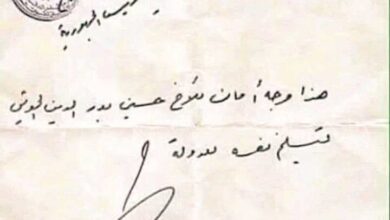 رئيس الجمهورية
هذا وجه أمان للأخ حسين بدر الدين الحوثي
لتسليم نفسه للدولة